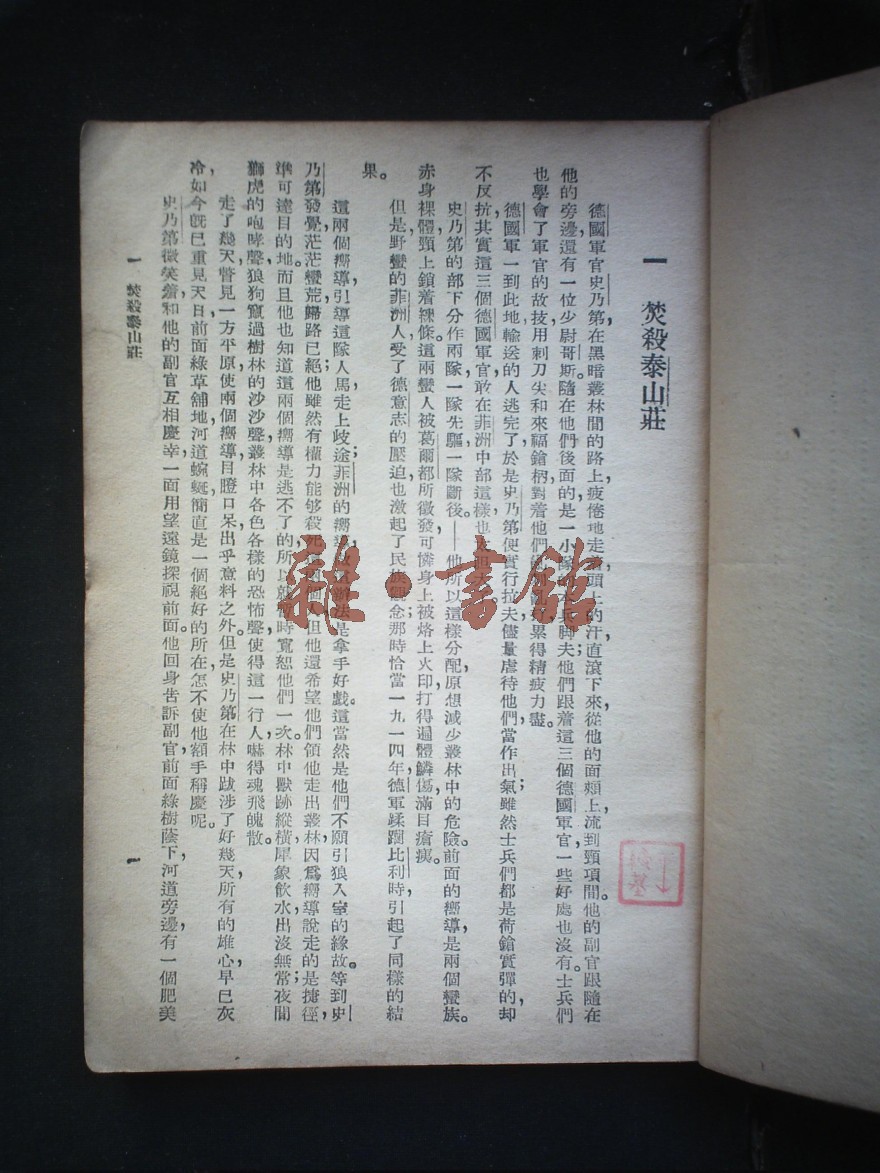 一 焚殺泰山莊
德國軍官史乃第在黑暗叢林間的路上，疲倦地走，頭上的汗直滾下來，從他的面頰上流到頸項間。他的副官跟隨在
他的旁邊，還有一位少尉哥斯。隨在他們後面的，是一小隊的士兵；脚夫他們跟着這三個德國軍官，一些好處也沒有。士兵們
也學會了軍官的故技，用刺刀尖和來福鎗柄對着他們累得精疲力盡。
德國軍一到此地，輸送的人逃完了，於是史乃第便實行拉夫，儘量虐待他們，當作出氣；雖然士兵們都是荷鎗實彈的，却
不反抗，其實這三個德國軍官敢在非洲中部這樣，也
史乃第的部下分作兩隊，一隊先驅，一隊斷後——他所以這樣分配，原想減少叢林中的危險。前面的嚮導，是兩個蠻族。
赤身裸體，頸上鎖着練條。這兩蠻人，被葛爾都所徵發，可憐身上被烙上火印，打得遍體鱗傷，滿目瘡痍。
但是，野蠻的非洲人，受了德意志的壓迫，也激起了民族觀念；那時恰當一九一四年，德軍蹂躪比利時，引起了同樣的結
果。
這兩個嚮導，引導這隊人馬，走上歧途；非洲的嚮導，法是拿手好戲。這當然是他們不願引狼入室的緣故。等到史
乃第發覺，茫茫蠻荒，歸路已絕；他雖然有權力能够殺死兩個人，但他還希望他們領他走出叢林，因爲嚮導說走的是捷徑，
準可達目的地。而且他也知道這兩個嚮導是逃不了的，所以就暫時寬恕他們一次。林中獸跡縱橫，犀象飲水，出沒無常；夜間
獅虎的咆哮聲，狼狗竄過樹林的沙沙聲，叢林中各色各樣的恐怖聲，使得這一行人嚇得魂飛魄散。
走了幾天，瞥見一方平原，使兩個嚮導目瞪口呆，出乎意料之外。但是史乃第在林中跋涉了好幾天，所有的雄心，早已灰
冷，如今旣已重見天日，前面綠草舖地，河道蜿蜒，簡直是一個絕好的所在，怎不使他額手稱慶呢。
史乃第微笑着，和他的副官互相慶幸，一面用望遠鏡探視前面。他回身告訴副官，前面綠樹蔭下，河道旁邊，有一個肥美
一 焚殺泰山莊
一
雜·書館